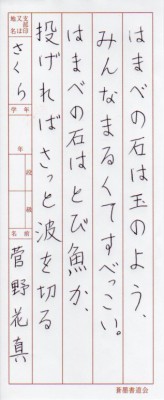 はまべの石は玉のよう、
みんなまるくてすべっこい。
はまべの石はとび魚か、
投げればさっと波を切る
支部印又は地名
さくら
学年
年
段級
名前
菅野花真
蒼墨書道会